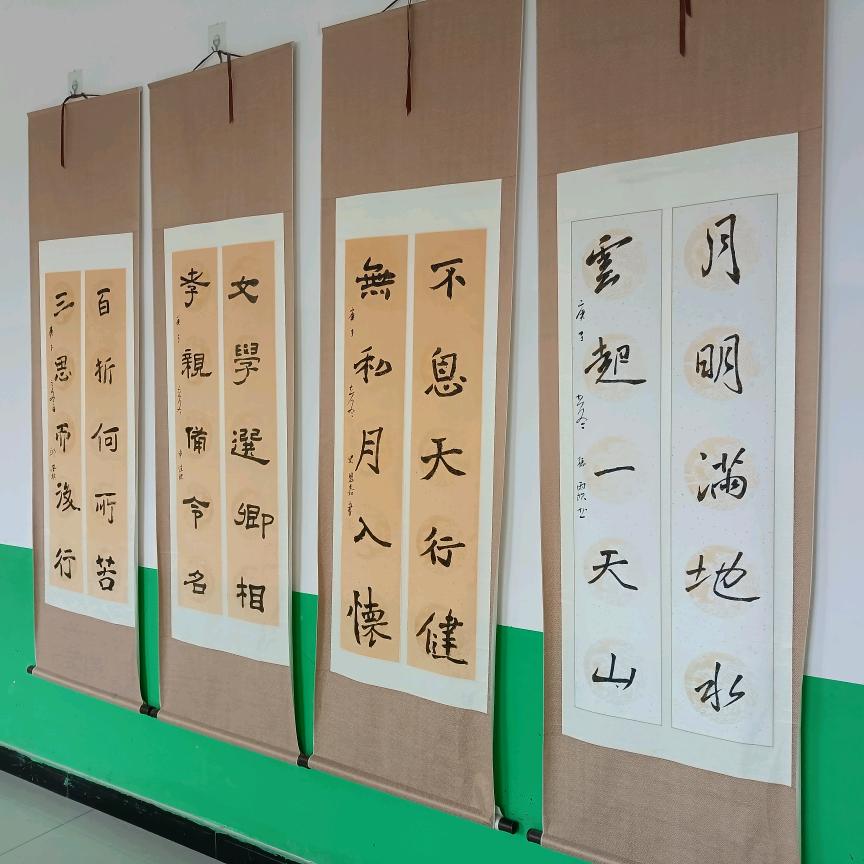 月明滿地水
雲起一天山
庚子
不息天行健
無私月入懷
庚子
文學選卿相
孝親備令名
百折何所苦
三思而後行